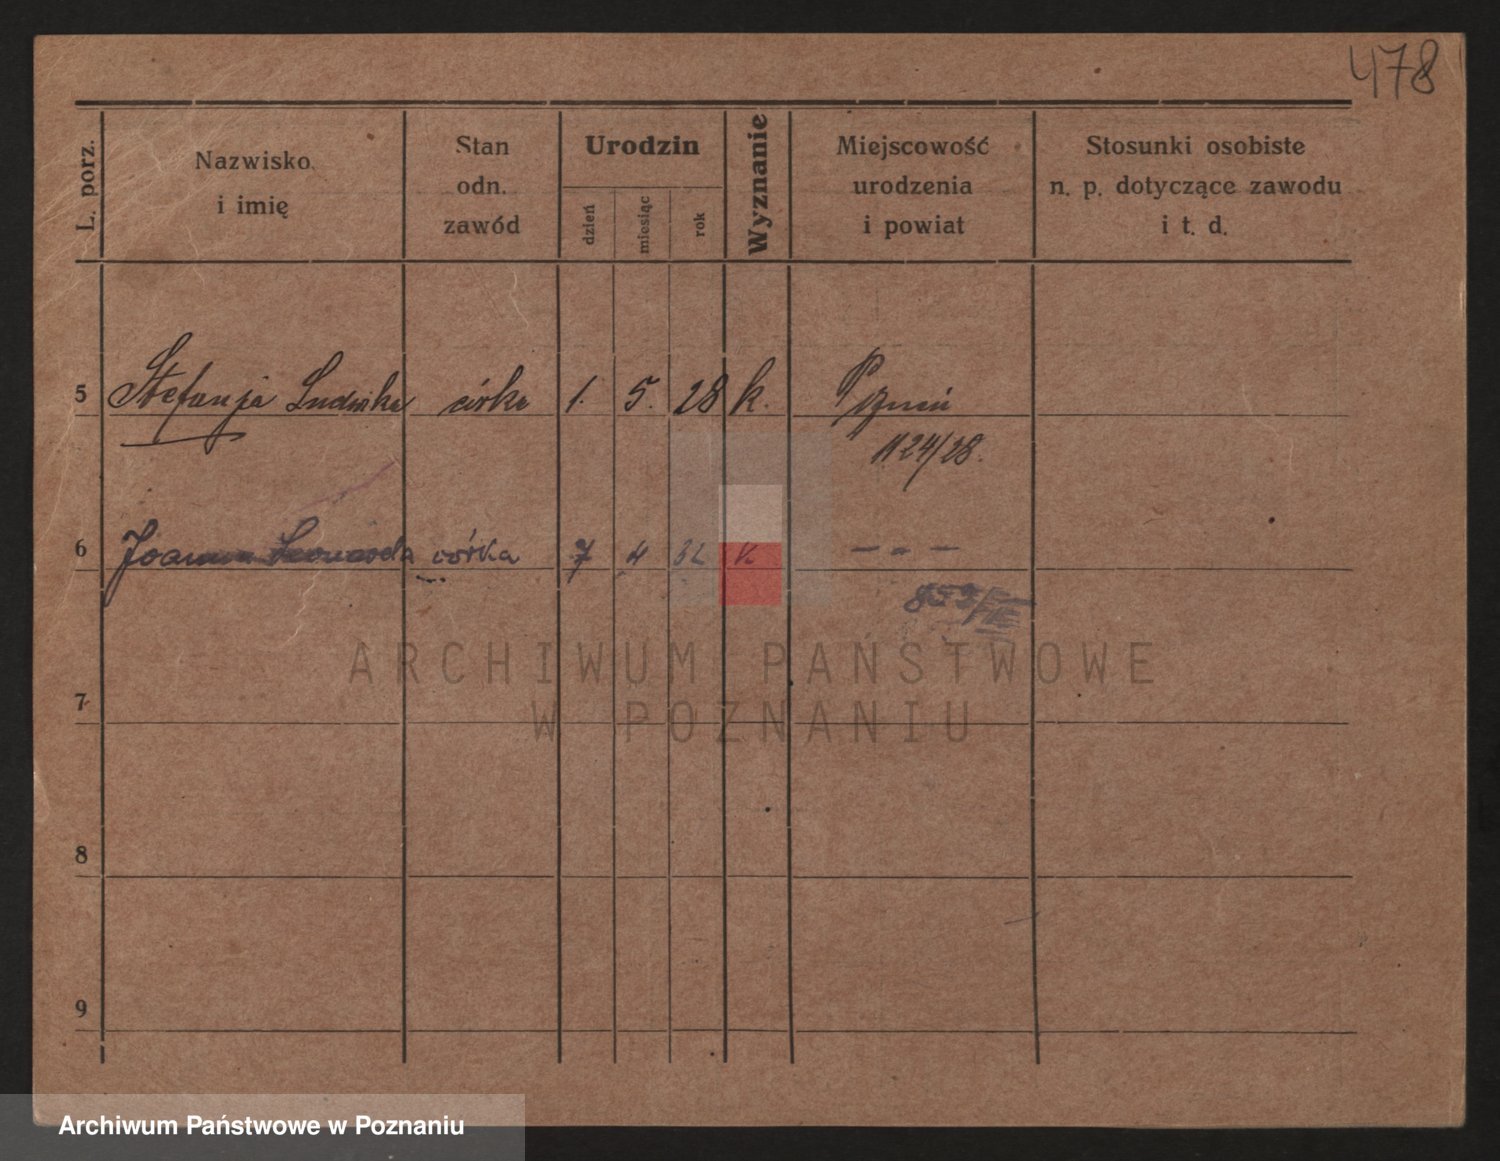 478
L. porz.
Nazwisko
i imię
Stan
odn.
zawód
Urodzin
dzień
miesiąc
rok
Wyznanie
Miejscowość
urodzenia
i powiat
Stosunki osobiste
n. p. dotyczące zawodu
i t. d.
5 Stefanja Ludwika córka 1. 5. 28 k. Poznań
1124/28.
6 Joanna Leonarda córka 7 4 32 K — „ —
853/
ARCHIWUM PAŃSTWOWE
W POZNANIU
7
8
9
Archiwum Państwowe w Poznaniu